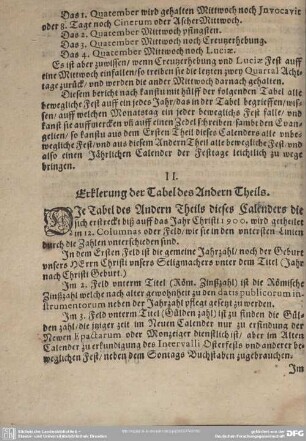 Das 1. Quatember wird gehalten Mittwoch noch Invocavit
oder 8. Tage noch Cinerum oder Ascher Mittwoch.
Das 2. Quatember Mittwoch pfingsten.
Das 3. Quatember Mittwoch noch Creutzerhebung.
Das 4. Quatember Mittwoch noch Luciæ.
Es ist aber zuwissen/ wenn Creutzerhebung vnd Luciæ Fest auff
eine Mittwoch einfallen/so treiben sie die letztern zwey Quartal Achte
tage zurück/ vnd werden die ander Mittwoch darnach gehalten.
Diesem bericht nach kanstu mit hülff der folgenden Tabel alle
bewegliche Fest auff ein jedes Jahr/das in der Tabel begrieffen/wis-
sen/ auff welchen Monatstag ein jeder bewegliches Fest falle/ vnd
kanst sie auff zwercken viß auff einen Zedel schreiben sambt den Evan-
gelien/ So kanstu aus dem Ersten Theil dieses Calenders alle vnbes
wegliche Fest/vnd aus diesem Andern Theil alle bewegliche Fest/vnd
also einen Jährlichen Calender der Festtage leichtlich zu weg
bringen.
II.
Erklerung der Tabel des Andern Theils.
DIe Tabel des Andern Theils dieses Calenders die
sich erstreckt biß auff das Jahr Christi 1900. wird getheilet
in 12. Columnas oder Feld/ wie sie in den vntersten Linien
durch die Zahlen vnterschieden sind.
In dem Ersten Feld ist die gemeine Jahrzahl/ noch der Geburt
vnsers HErrn Christi vnsers Seligmachers vnter dem Titel (Jahr
nach Christi Geburt.)
Im 2. Feld vnterm Titel (Röm. Zinßzahl) ist die Römische
Zinßzahl welche nach alter gewohnheit zu den datis publicorum in-
strumentorum neben der Jahrzahl pflegt gesetzt zu werden.
Im 3. Feld vnterm Titel (Gülden zahl) ist zu finden die Gül-
den zahl/ die itziger zeit im Neuen Calender nur zu erfindung der
Newen Epactarum oder Monzeiger dienstlich ist/ aber im Alten
Calender zu erkundigung des Intervalli Osterfests vnd anderer be
weglichen Fest/ neben dem Sontags Buchstaben zugebrauchen.
Im